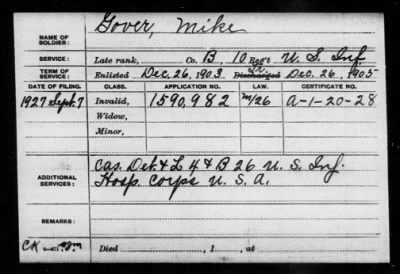 Gover, Mike
NAME OF SOLDIER:
SERVICE: Late rank, Co. B, 10 Reg't U. S. Inf
TERM OF SERVICE: Enlisted Dec. 26, 1903, Discharged Dec. 26, 1905
DATE OF FILING. CLASS. APPLICATION NO. LAW. CERTIFICATE NO.
1927 Sept. 7 Invalid, 1590,982 A-1-20-28
Widow,
Minor,
ADDITIONAL SERVICES: Cas. Det. & L 4 & B 26 U. S. Inf.
Hosp. Corps U. S. A.
REMARKS:
CK Died , 1 , at